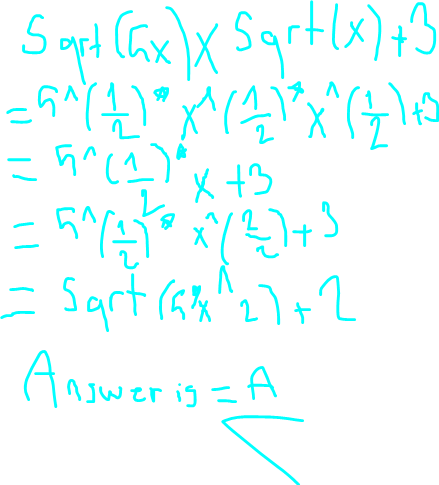 Sqrt(5x) X Sqrt(x)+3
=5^(1/2)*x^(1/2)*x^(1/2)+3
=5^(1/2)*x+3
=5^(1/2)*x^(2/2)+3
=Sqrt(5*x^2)+2
Answer is = A